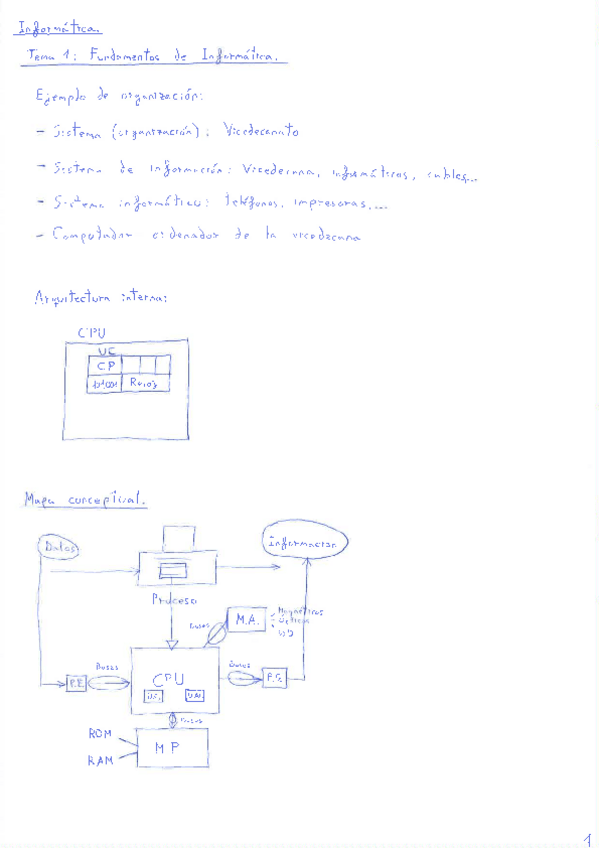 Informática.
Tema 1: Fundamentos de Informática.
Ejemplo de organización:
- Sistema (organización): Vicedecanato
- Sistema de información: Vicedecana, informáticos, cables...
- Sistema informático: teléfonos, impresoras,...
- Computador ordenador de la vicedecana
Arquitectura interna:
CPU
UC
CP
Reloj
Mapa conceptual.
Datos
Información
Proceso
Buses
M.A.
Magnéticos
Ópticos
Buses
CPU
Buses
P.E.
P.S.
U.C.
Buses
ROM
MP
RAM
1